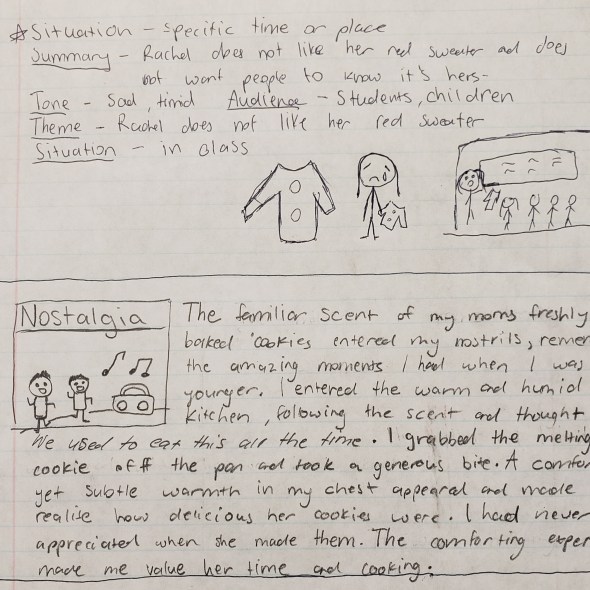 ☆Situation - specific time or place
Summary - Rachel does not like her red sweater ad does
not want people to know it's hers-
Tone - Sad, timid Audience - Students, children
Theme - Rachel does not like her red sweater
Situation - in Class
Nostalgia
The familiar scent of my moms freshly
baked cookies entered my nostrils, remem
the amazing moments I had when I was
younger. I entered the warm and humid
kitchen, following the scent and thought
We used to eat this all the time. I grabbed the melting
cookie off the pan and took a generous bite. A comfor
yet subtle warmth in my chest appeared and made
realise how delicious her cookies were. I had never
appreciated when she made them. The comforting exper
made me value her time and cooking.